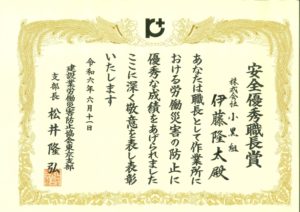 安全優秀職長賞
株式会社 小黒組
伊藤隆太殿
あなたは職長として作業所に
おける労働災害の防止に
優秀な成績をあげられました
ここに深く敬意を表し表彰
いたします
令和六年六月十一日
建設業労働災害防止協会東京支部
支部長 松井隆弘